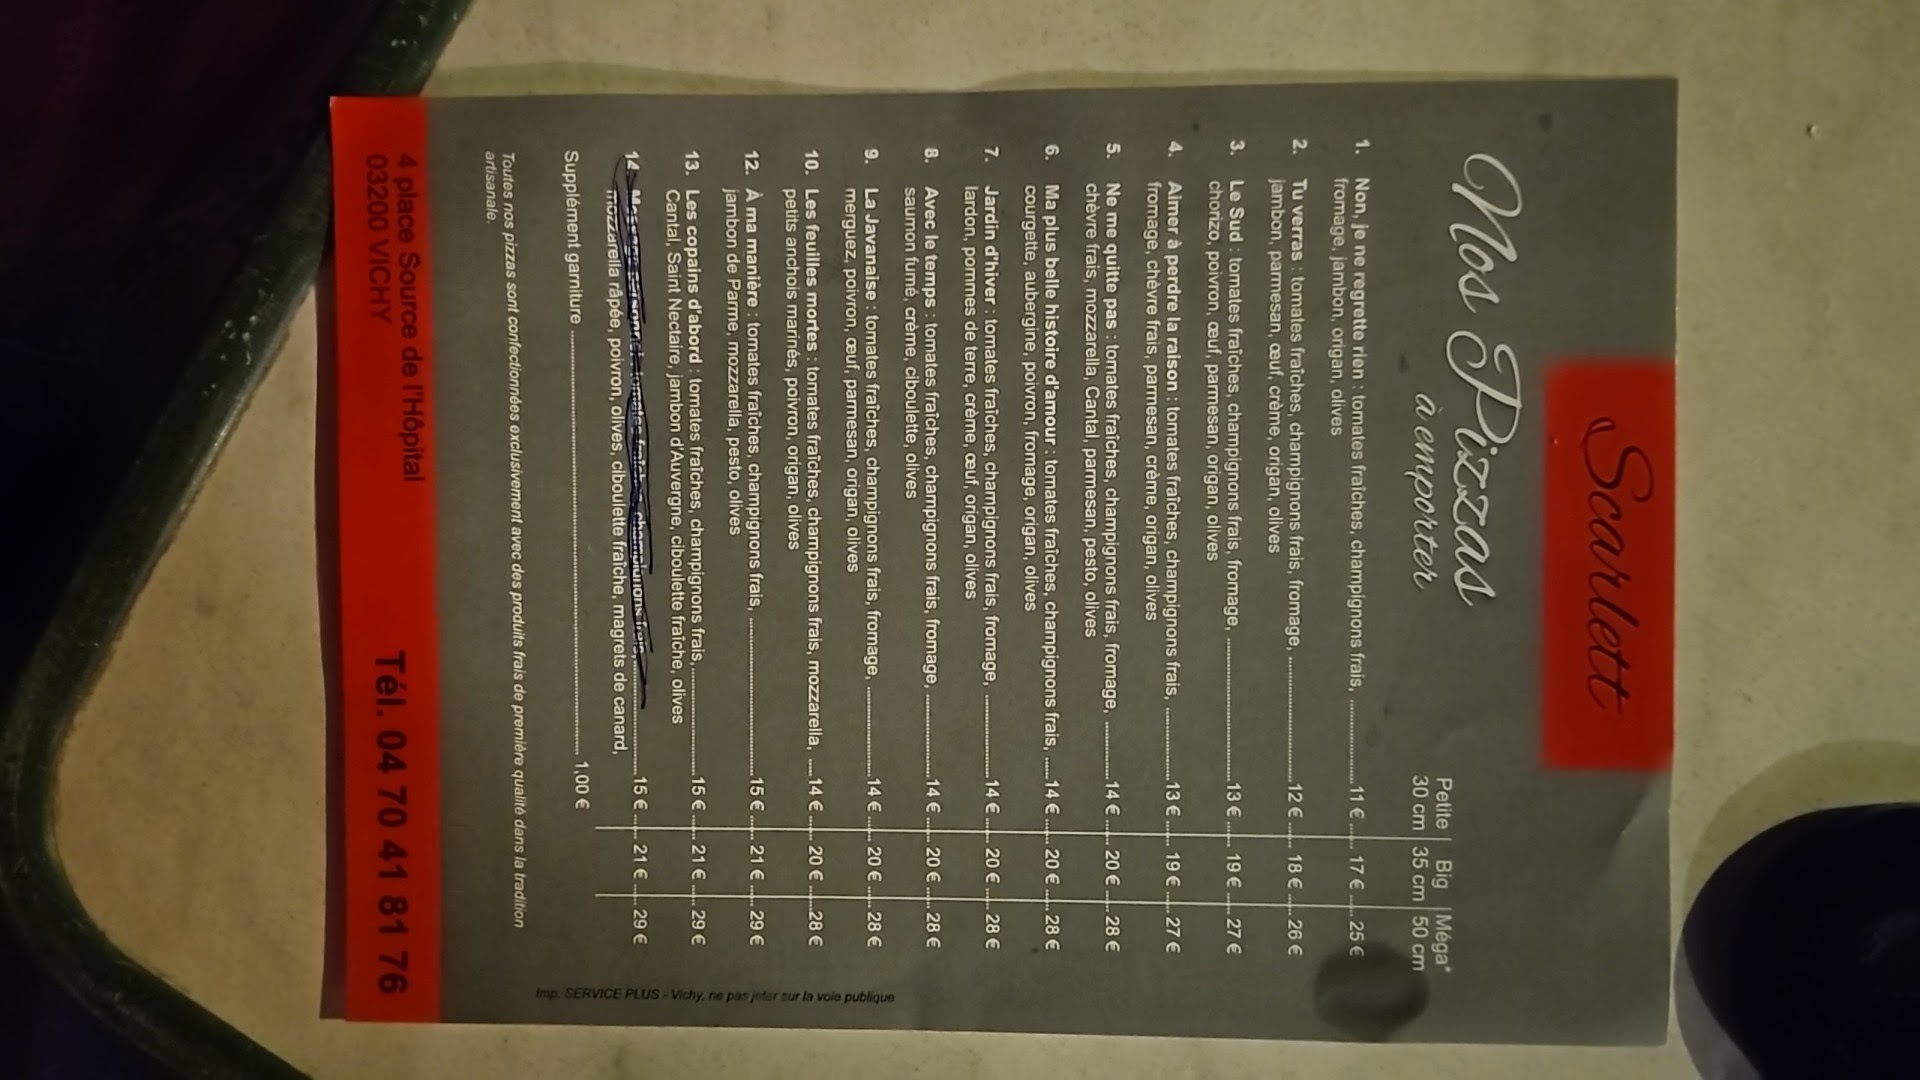 Scarlett
Nos Pizzas
à emporter
Petite | Big |Méga*
30 cm 35 cm 50 cm
1. Non, je ne regrette rien : tomates fraîches, champignons frais, ........11 € ..... 17 € ..... 25 €
fromage, jambon, origan, olives
2. Tu verras : tomates fraîches, champignons frais, fromage, ........12 € ..... 18 € ..... 26 €
jambon, parmesan, œuf, crème, origan, olives
3. Le Sud : tomates fraîches, champignons frais, fromage, ........13 € ..... 19 € ..... 27 €
chorizo, poivron, œuf, parmesan, origan, olives
4. Aimer à perdre la raison : tomates fraîches, champignons frais, ........13 € ..... 19 € ..... 27 €
fromage, chèvre frais, parmesan, crème, origan, olives
5. Ne me quitte pas : tomates fraîches, champignons frais, fromage, ........14 € ..... 20 € ..... 28 €
chèvre frais, mozzarella, Cantal, parmesan, pesto, olives
6. Ma plus belle histoire d'amour : tomates fraîches, champignons frais, .....14 € ..... 20 € ..... 28 €
courgette, aubergine, poivron, fromage, origan, olives
7. Jardin d'hiver : tomates fraîches, champignons frais, fromage, ........14 € ..... 20 € ..... 28 €
lardon, pommes de terre, crème, œuf, origan, olives
8. Avec le temps : tomates fraîches, champignons frais, fromage, ........14 € ..... 20 € ..... 28 €
saumon fumé, crème, ciboulette, olives
9. La Javanaise : tomates fraîches, champignons frais, fromage, ........14 € ..... 20 € ..... 28 €
merguez, poivron, œuf, parmesan, origan, olives
10. Les feuilles mortes : tomates fraîches, champignons frais, mozzarella, ....14 € ..... 20 € ..... 28 €
petits anchois marinés, poivron, origan, olives
12. À ma manière : tomates fraîches, champignons frais, ........15 € ..... 21 € ..... 29 €
jambon de Parme, mozzarella, pesto, olives
13. Les copains d'abord : tomates fraîches, champignons frais, ........15 € ..... 21 € ..... 29 €
Cantal, Saint Nectaire, jambon d'Auvergne, ciboulette fraîche, olives
14. tomates champignons frais, ........15 € ..... 21 € ..... 29 €
mozzarella râpée, poivron, olives, ciboulette fraîche, magrets de canard,
Supplément garniture ........ 1,00 €
Toutes nos pizzas sont confectionnées exclusivement avec des produits frais de première qualité dans la tradition
artisanale.
Imp. SERVICE PLUS - Vichy, ne pas jeter sur la voie publique
4 place Source de l'Hôpital
03200 VICHY
Tél. 04 70 41 81 76